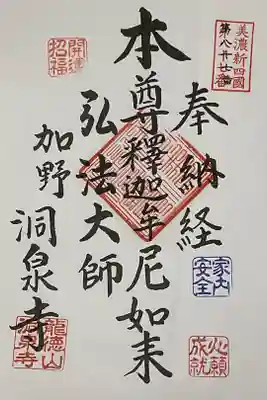 美濃新四國
奉納経
家内
安全
心願
成就
本尊釋迦牟尼如来
弘法大師
開運
招福
加野 洞泉寺
龍徳山
洞泉寺